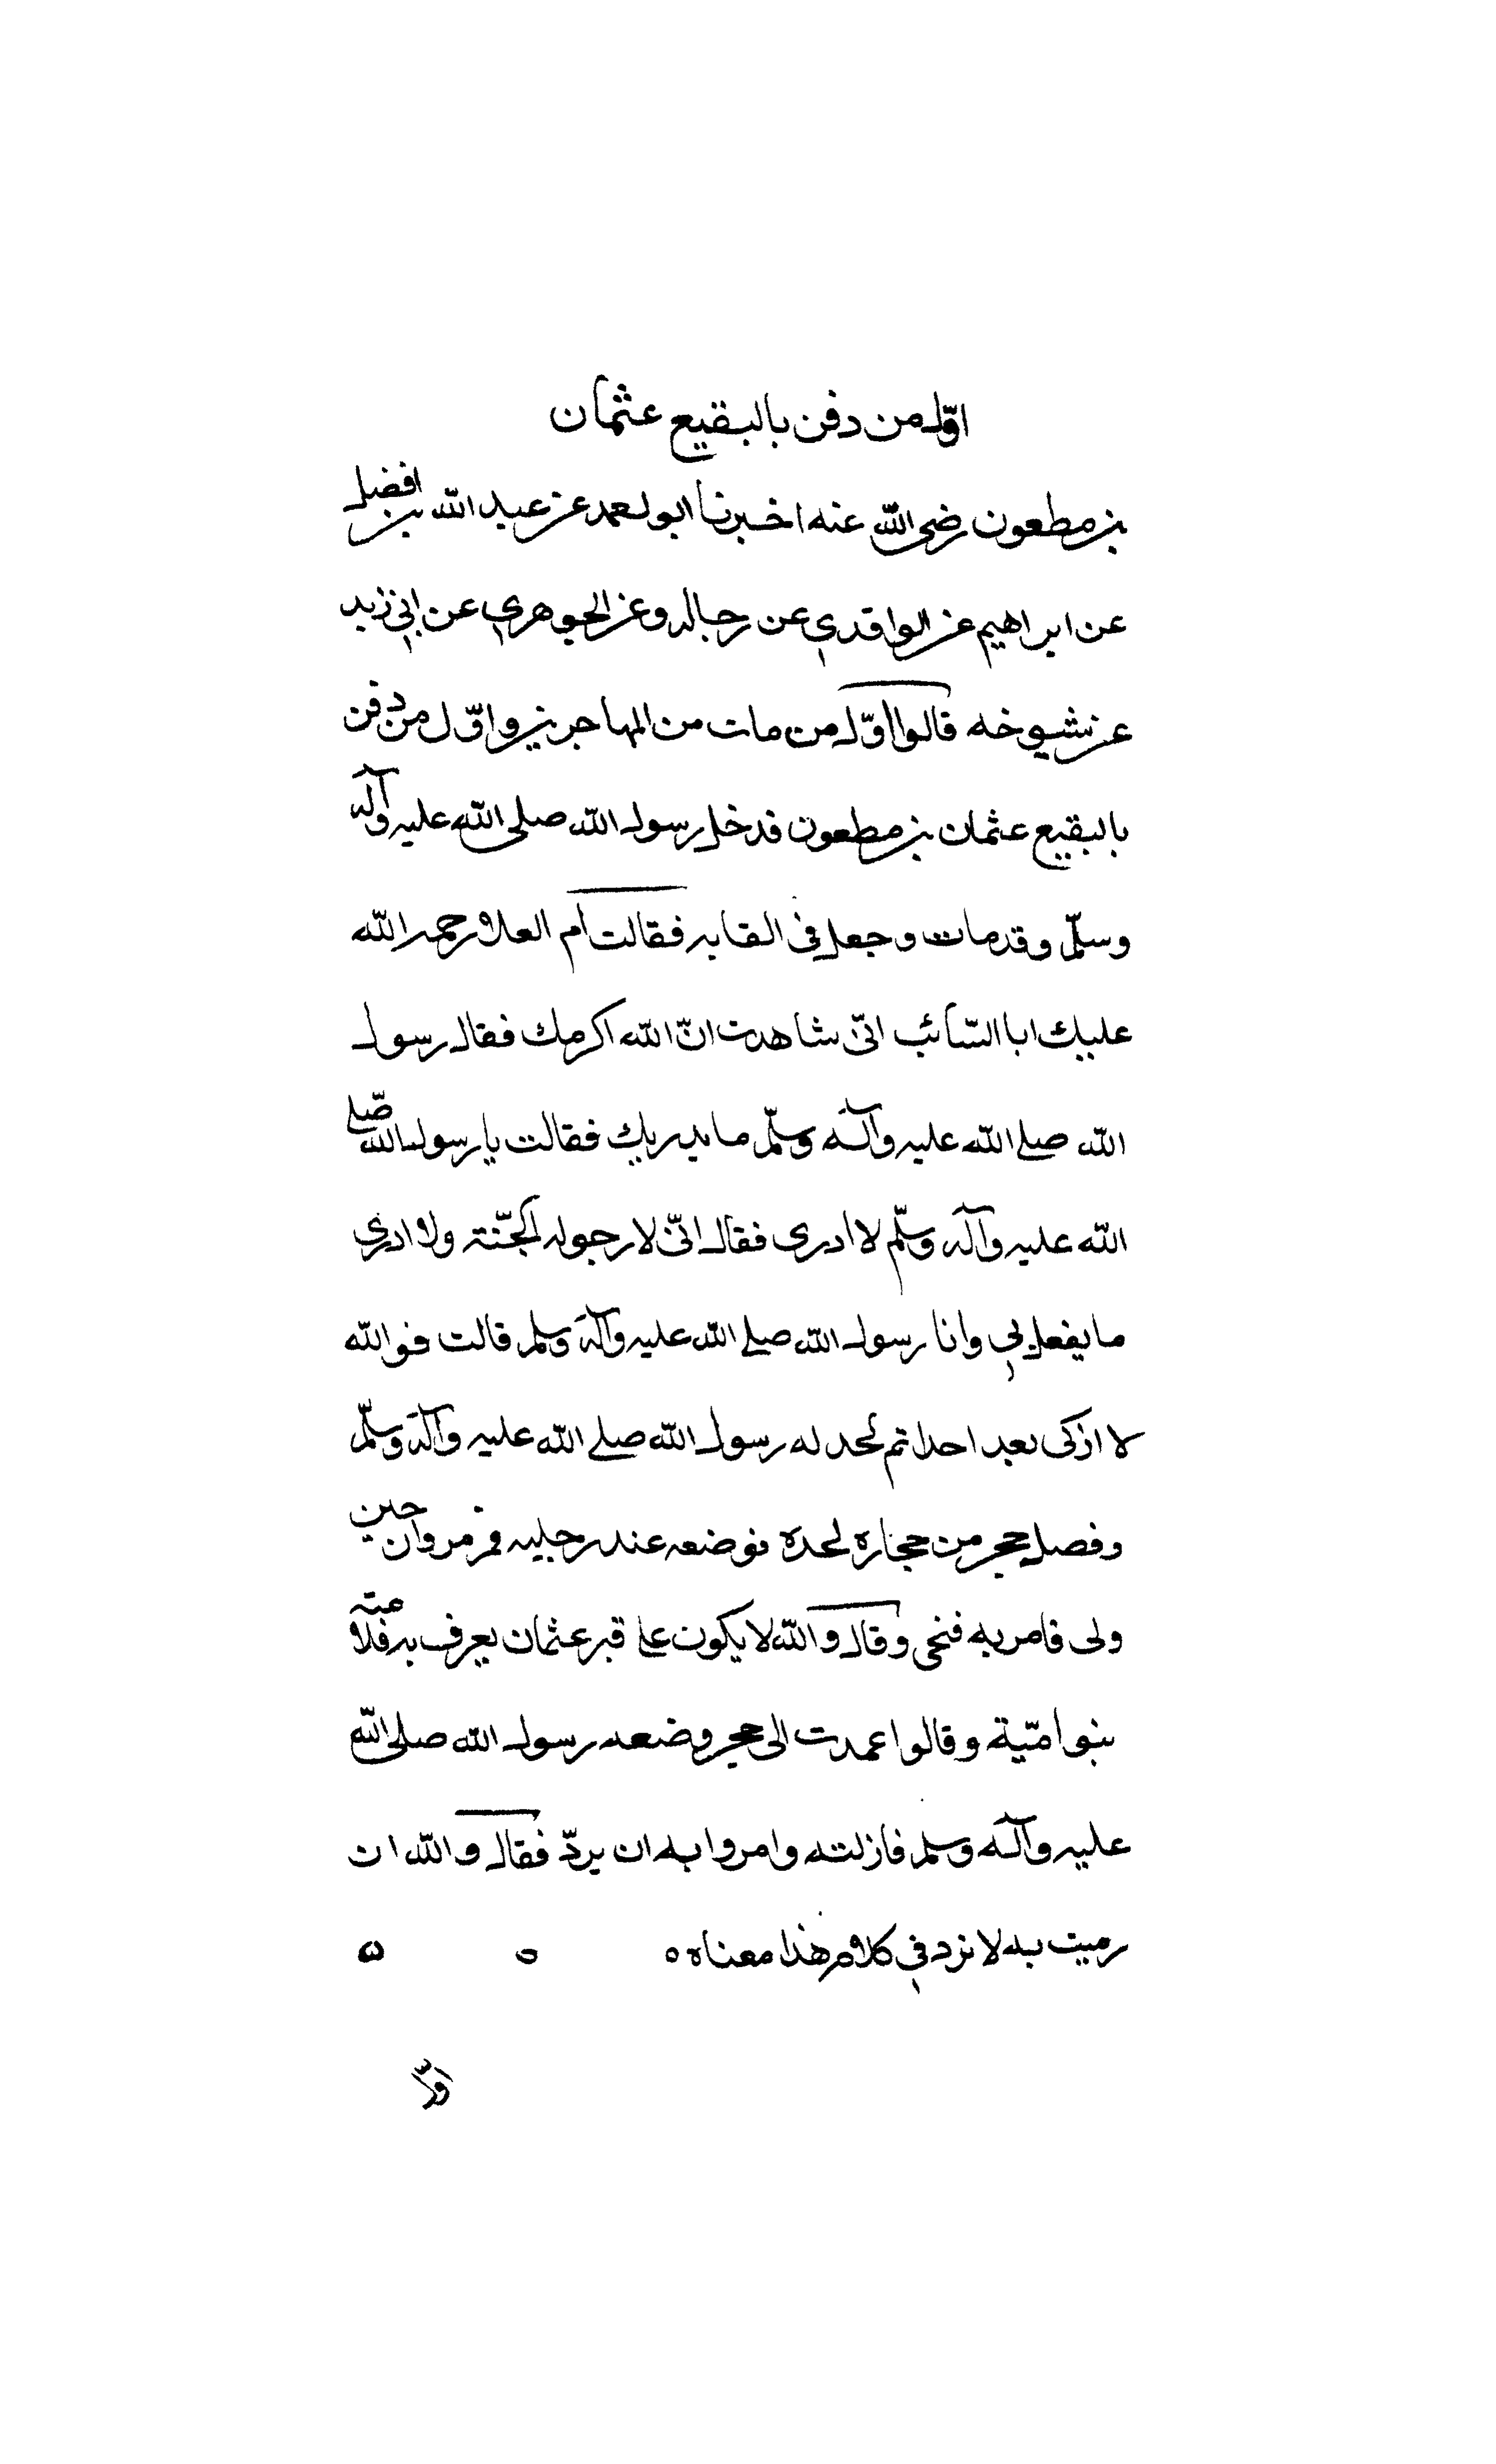 اوّل من دفن بالبقيع عثمان
بن مطعون رضى الله عنه اخبرنا ابو احمد عن عبيد الله بن افضل
عن ابراهيم عن الواقدي عن رجاله وعن الجوهري عن ابي زيد
عن شيوخه قالوا اوّل من مات من المهاجرين واوّل من دفن
بالبقيع عثمان بن مطعون فدخل رسول الله صلى الله عليه وآله
وسلّم وقد مات وجعل في القابه فقالت ام العلا رحمه الله
عليك ابا السّائب انّى شاهدت انّ الله اكرمك فقال رسول
الله صلى الله عليه وآله وسلّم ما يدريك فقالت يا رسول الله صلّى
الله عليه وآله وسلّم لا ادرى فقال انّى لارجو له الجنّة ولا ادرى
ما يفعل بي وانا رسول الله صلى الله عليه وآله وسلم قالت فوالله
لا ازكى بعد احدا ثم لحد له رسول الله صلى الله عليه وآله وسلّم
وفصل حجر من حجاره لحده فوضعه عند رجليه فمر مروان حين
ولى فامر به فنحى وقال والله لا يكون على قبر عثمان يعرف به فلامته
بنو اميّة وقالوا عمدت الى حجر وضعه رسول الله صلى الله
عليه وآله وسلم فازلته وامروا به ان يردّ فقال والله ان
رميت به لا نرد في كلام هذا معناه ه
اوّل